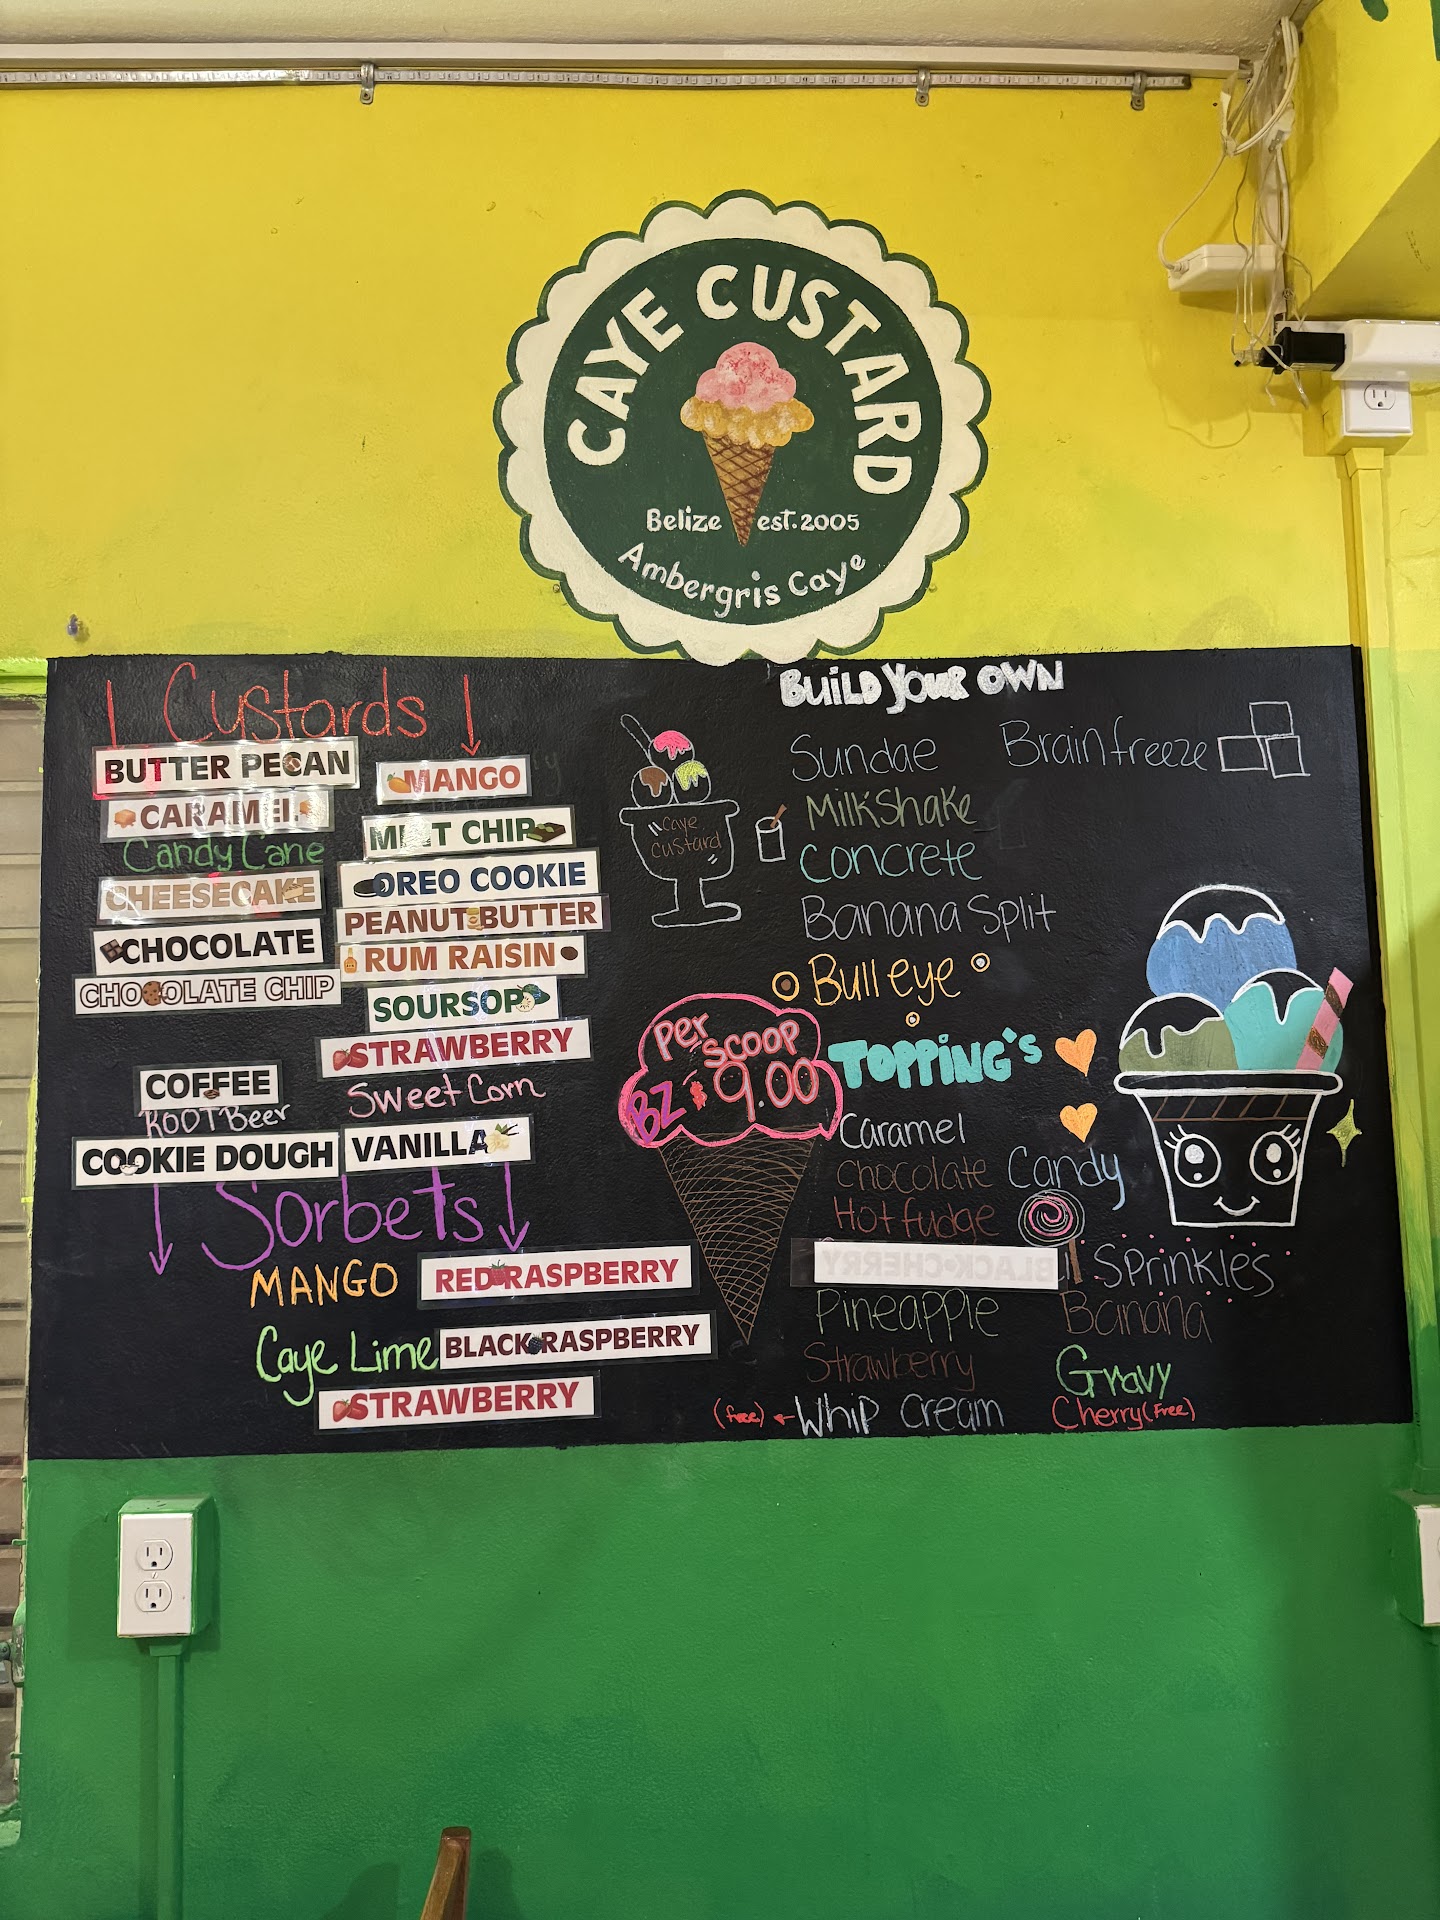 CAYE CUSTARD
Belize est. 2005
Ambergris Caye
Custards
BUTTER PECAN
CARAMEL
Candy Cane
CHEESECAKE
CHOCOLATE
CHOCOLATE CHIP
COFFEE
ROOT Beer
COOKIE DOUGH
MANGO
MINT CHIP
OREO COOKIE
PEANUT BUTTER
RUM RAISIN
SOURSOP
STRAWBERRY
Sweet Corn
VANILLA
Sorbets
MANGO
RED RASPBERRY
Caye Lime
BLACK RASPBERRY
STRAWBERRY
Caye
Custard
Per
Scoop
BZ $9.00
BUiLD YOUR OWN
Sundae
Brainfreeze
MilkShake
Concrete
Banana Split
Bull eye
TOPPiNG's
Caramel
Chocolate
Candy
Hot fudge
BLACK CHERRY
Sprinkles
Pineapple
Banana
Strawberry
Gravy
(free) Whip Cream
Cherry (Free)